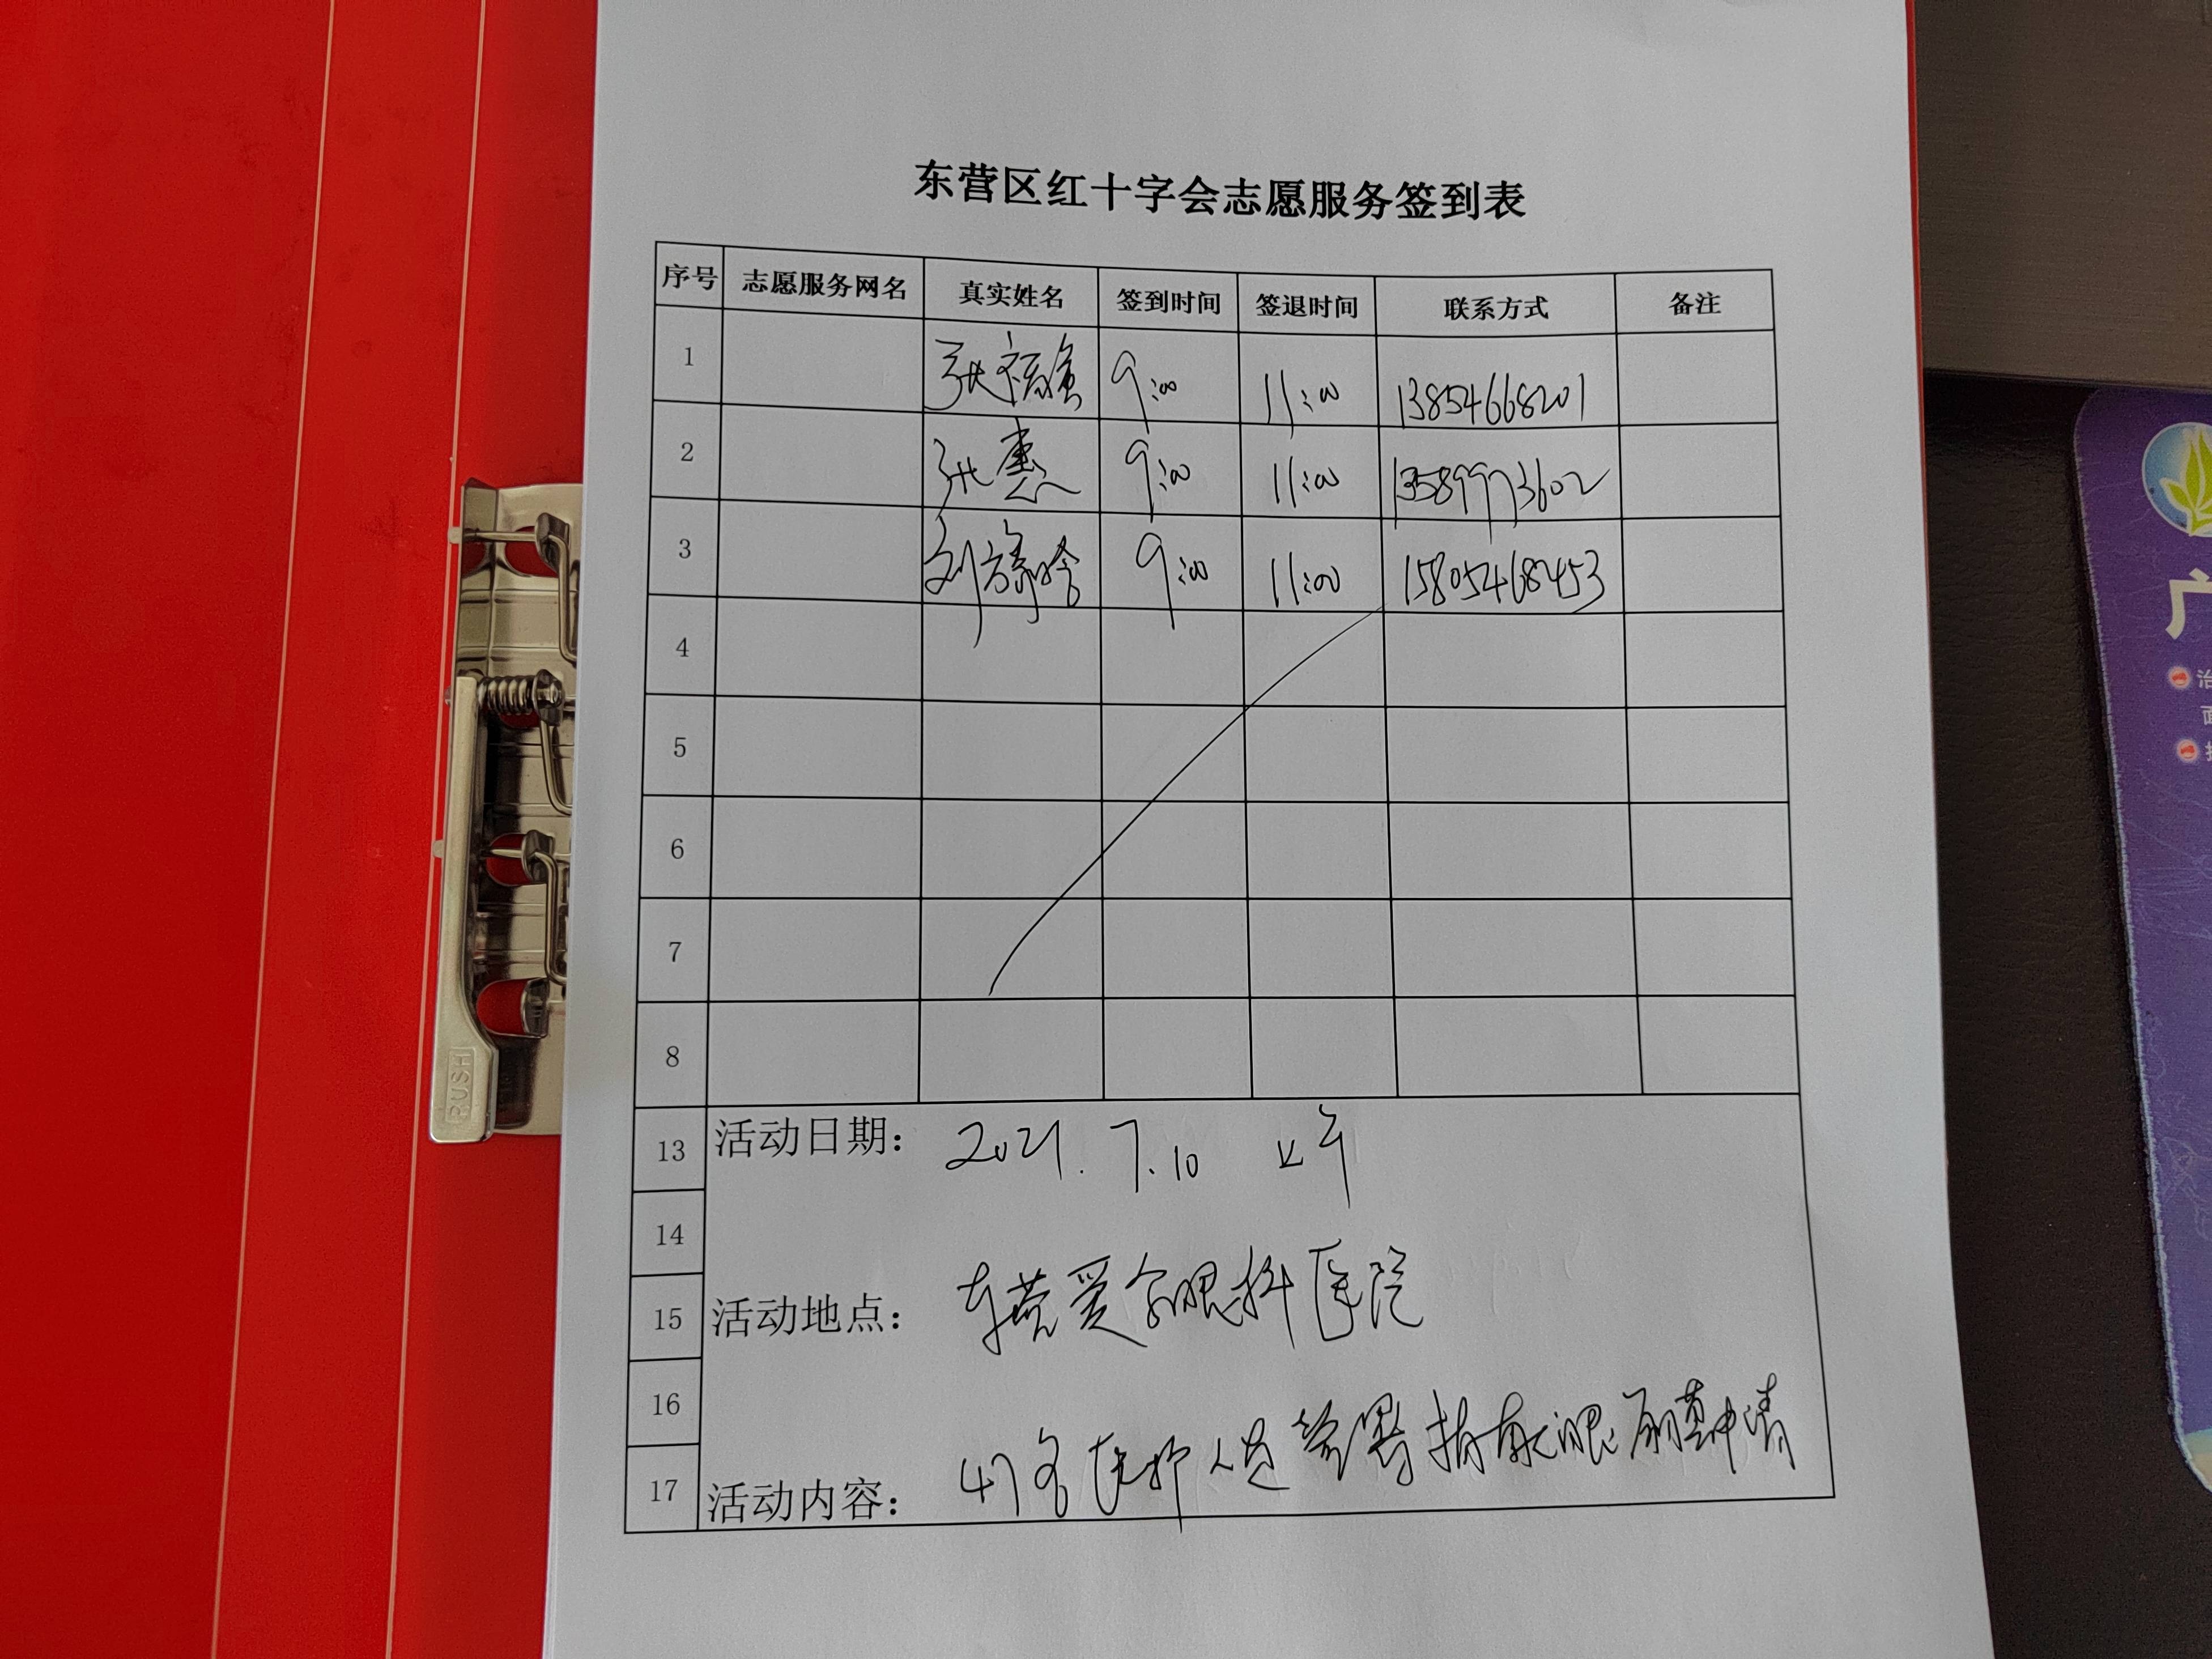 东营区红十字会志愿服务签到表
序号 志愿服务网名 真实姓名 签到时间 签退时间 联系方式 备注
1 张福宝 9:00 11:00 13854668201
2 张惠 9:00 11:00 13589973602
3 刘 9:00 11:00 15805468453
4
5
6
7
8
13 活动日期: 2021.7.10 上午
14
15 活动地点: 东营爱尔眼科医院
16
17 活动内容: 47名医护人员签署捐献眼角膜申请
PUSH
广
治